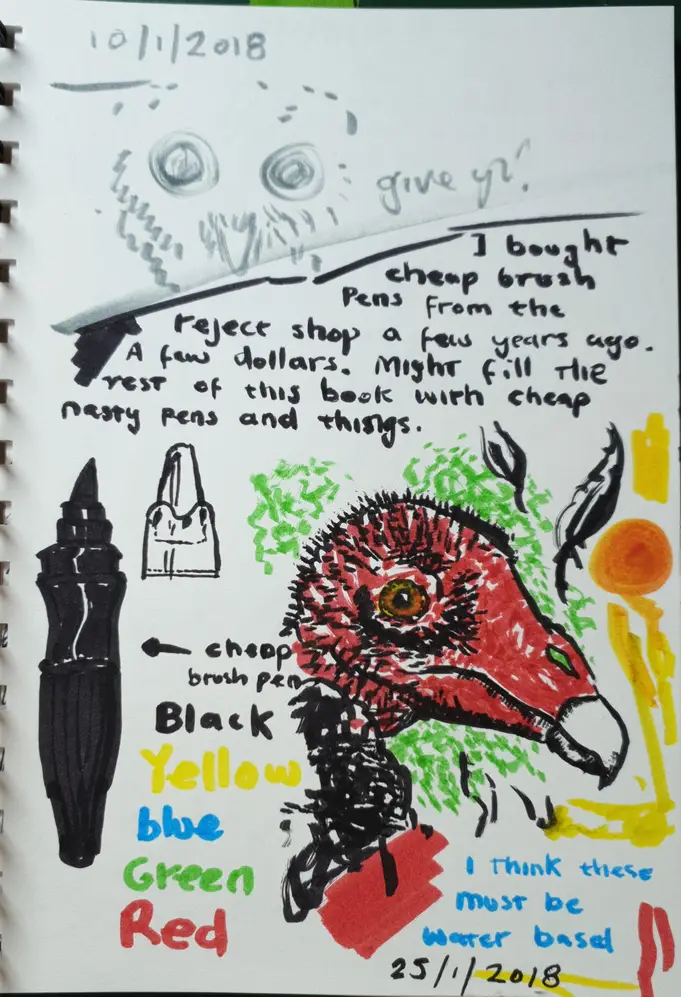 10/1/2018
give
I bought
cheap brush
Pens from the
reject shop a few years ago.
A few dollars. Might fill the
rest of this book with cheap
nasty pens and things.
cheap
brush pen
Black
Yellow
blue
Green
Red
I think these
must be
water based
25/1/2018